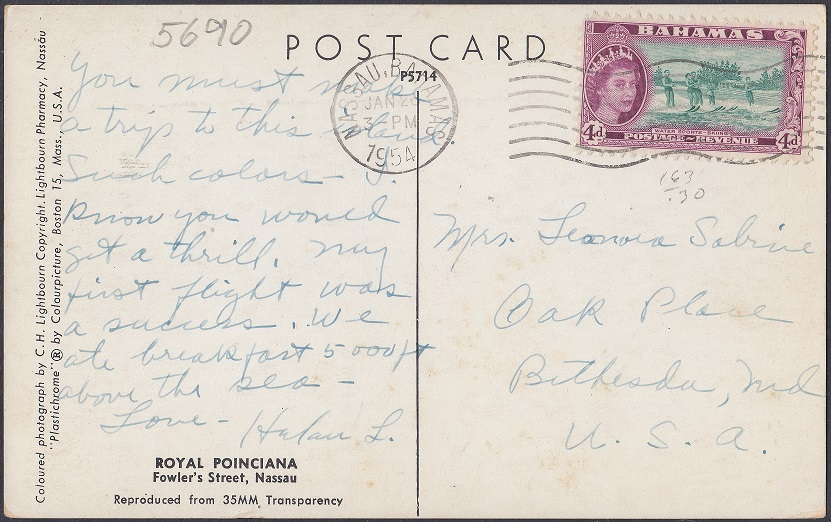 5690
POST CARD
P5714
BAHAMAS
WATER SPORTS - SKIING
4d POSTAGE - REVENUE 4d
NASSAU, BAHAMAS
JAN 2
PM
1954
163
.30
You must make
a trip to this island.
Such colors - I
know you would
get a thrill. My
first flight was
a success. We
ate breakfast 5000ft
above the sea -
Love - Helen L.
Mrs. Leonora Sabine
Oak Place
Bethesda, Md
U. S. A.
ROYAL POINCIANA
Fowler's Street, Nassau
Reproduced from 35MM Transparency
Coloured photograph by C. H. Lightbourn Copyright. Lightbourn Pharmacy, Nassau
"Plastichrome" ® by Colourpicture, Boston 15, Mass., U.S.A.